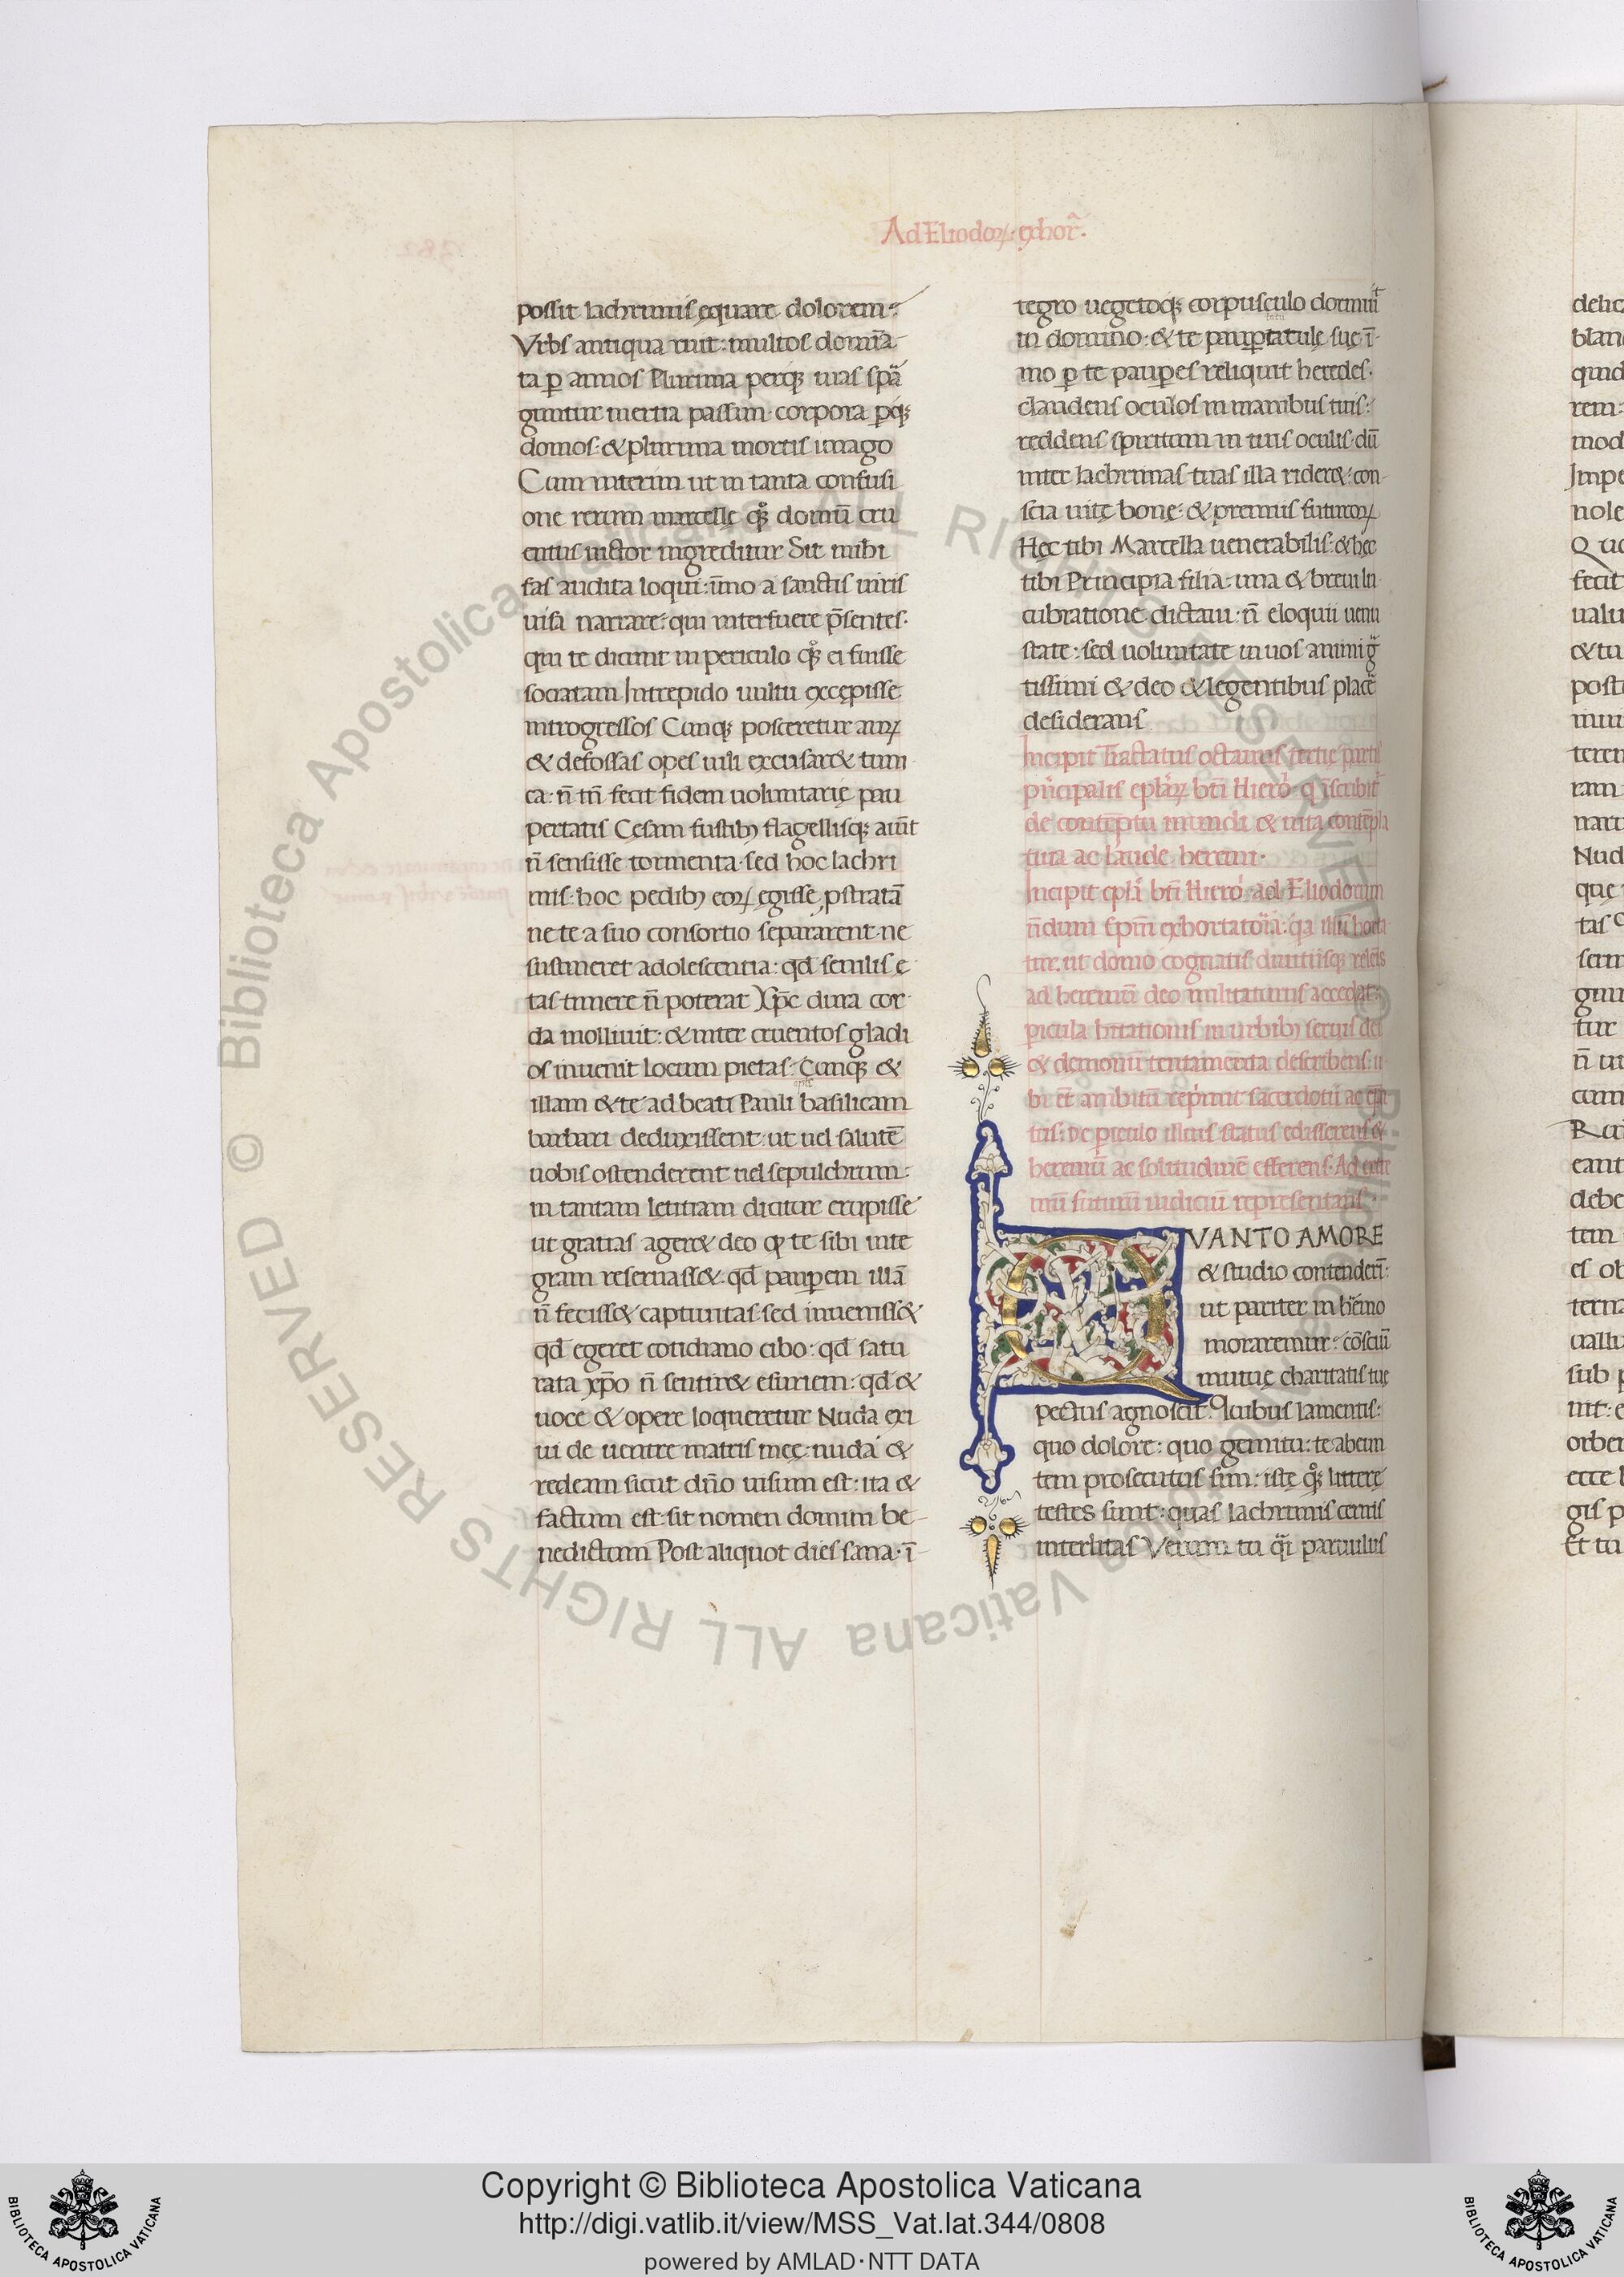 Ad Eliodoꝝ· exhor̃.
possit lachrimis ęquare dolorem·
Vrbs antiqua ruit: multos domĩa
ta ꝑ annos Plurima perqꝫ uias spã
guntur inertia passim corpora ꝑqꝫ
domos· & plurima mortis imago
Cum interim ut in tanta confusi
one rerum marcellę qͦqꝫ domũ cru
entus uictor ingreditur Sit mihi
fas audita loqui: ĩmo a sanctis uiris
uisa narrare: qui interfuere p̃sentes·
qui te dicunt in periculo qͦqꝫ ei fuisse
sociatam Intrepido uultu excępisse
introgressos Cunqꝫ posceretur auꝝ
& defossas opes uili excusar& tuni
ca: ñ tñ fecit fidem uoluntarię pau
pertatis Cesam fustibꝫ flagellisqꝫ aiũt
ñ sensisse tormenta· sed hoc lachri
mis· hoc pedibꝫ eoꝝ egisse ꝓstratã
ne te a suo consortio separarent· ne
sustineret adolescentia: qd̃ senilis ę
tas timere ñ poterat Xp̃c dura cor
da molliuit: & inter cruentos gladi
os inuenit locum pietas· Cunqꝫ &
illam & te ad beati Pauli basilicam
barbari deduxissent· ut uel salutẽ
uobis ostenderent uel sepulchrum·
in tantam lętitiam dicitur erupisse
ut gratias ager& deo ꝙ te sibi inte
gram reseruass&· qd̃ pauꝑem illã
ñ feciss& captiuitas· sed inueniss&
qd̃ egeret cotidiano cibo: qd̃ satu
rata xp̃o ñ sentir& esuriem: qd̃ &
uoce & opere loqueretur Nuda exi
ui de uentre matris meę· nuda &
redeam sicut dño uisum est: ita &
factum est· sit nomen domini be
nedictum Post aliquot dies sana· ĩ
tegro uegetoqꝫ corpusculo dormiṽt
in domino: & te pauꝑtatulę suę ĩ
mo ꝑ te pauꝑes reliquit heredes·
claudens oculos in manibus tuis:
reddens spiritum in tuis oculis· dũ
inter lachrimas tuas illa rider&· con
scia uitę bonę: & premiis futuroꝝ
Hęc tibi Marcella uenerabilis· & hęc
tibi Principia filia· una & breui lu
cubratione dictaui· ñ eloquii uenu
state: sed uoluntate in uos animi g̃
tissimi & deo & legentibus placẽ
desiderans
Incipit Tractatus octauus tertię partis
p̃ncipalis epl̃aꝝ bt̃i Hiero· q̃ ĩscribit̃
de contẽptu mundi & uita contẽpla
tiua ac laude heremi·
Incipit epl̃a bt̃i Hiero· ad Eliodorum
ñdum Ep̃m exhortatoria: q̃a illũ horta
tur· ut domo cognatis diuitiisqꝫ relc̃is
ad heremũ deo militaturus accedat:
picula hitationis in urbibꝫ seruis dei
& demonũ tentamenta describens: u
bi et̃ ambitũ rep̃mit sacerdotii ac ep̃a
tus: De piculo illius status edisserens &
heremũ ac solitudinẽ efferens· Ad extre
mũ futurũ iudiciũ representans·
QVANTO AMORE
& studio contenderĩ:
ut pariter in h̃emo
moraremur· cõsciũ
mutuę charitatis tuę
pectus agnoscit· Quibus lamentis:
quo dolore: quo gemitu: te abeun
tem prosecutus sim: iste qͦqꝫ litterę
testes sunt: quas lachrimis cernis
interlitas Verum tu q̃i paruulus
Copyright © Biblioteca Apostolica Vaticana
http://digi.vatlib.it/view/MSS_Vat.lat.344/0808
powered by AMLAD·NTT DATA